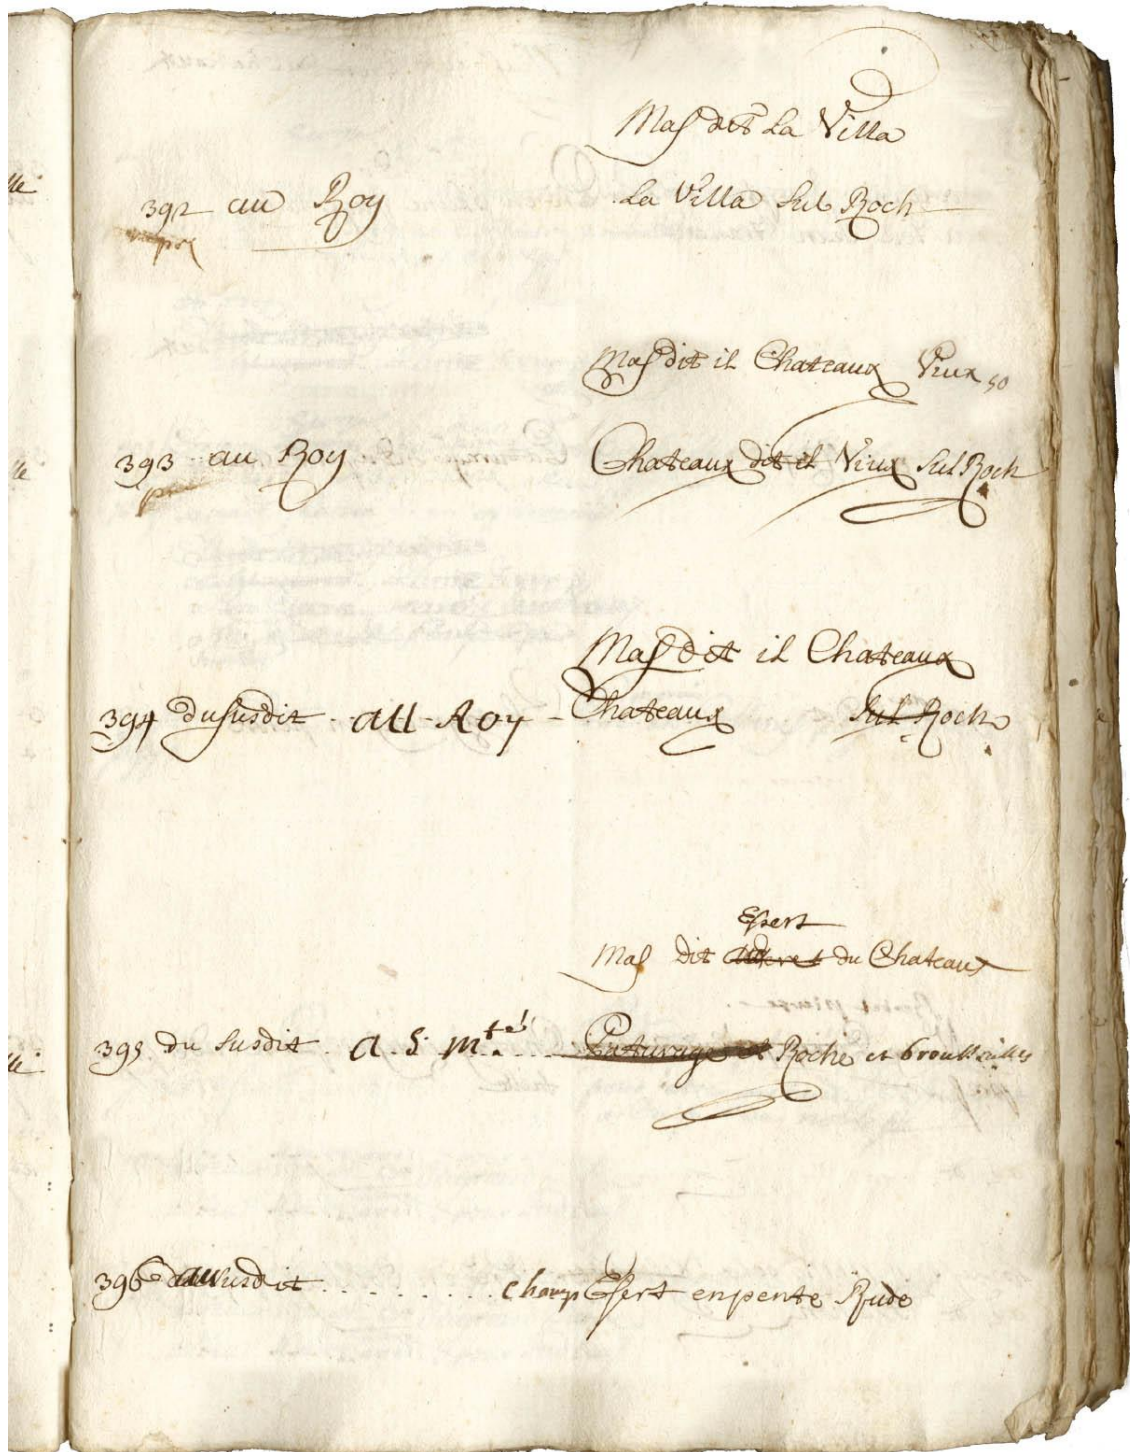 Mas dit La Villa
392 au Roy La Villa Sul Roch
Mas dit il Chateaux Vieux 50
393 au Roy Chateaux dit il Vieux Sul Roch
Mas dit il Chateaux
394 du susdit au Roy Chateaux Sul Roch
Esert
Mas dit du Chateaux
395 du susdit a. S. Mté Paturage et Roche et brousailles
396 au susdit champ Esert en pente Rude